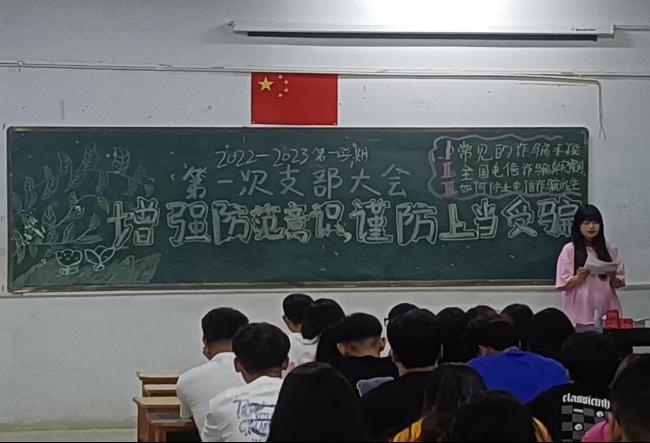 2022-2023第一学期
第一次支部大会
增强防范意识,谨防上当受骗
I 常见的诈骗手段
II 全国电信诈骗案例
III 如何防止电信诈骗发生
classicinh